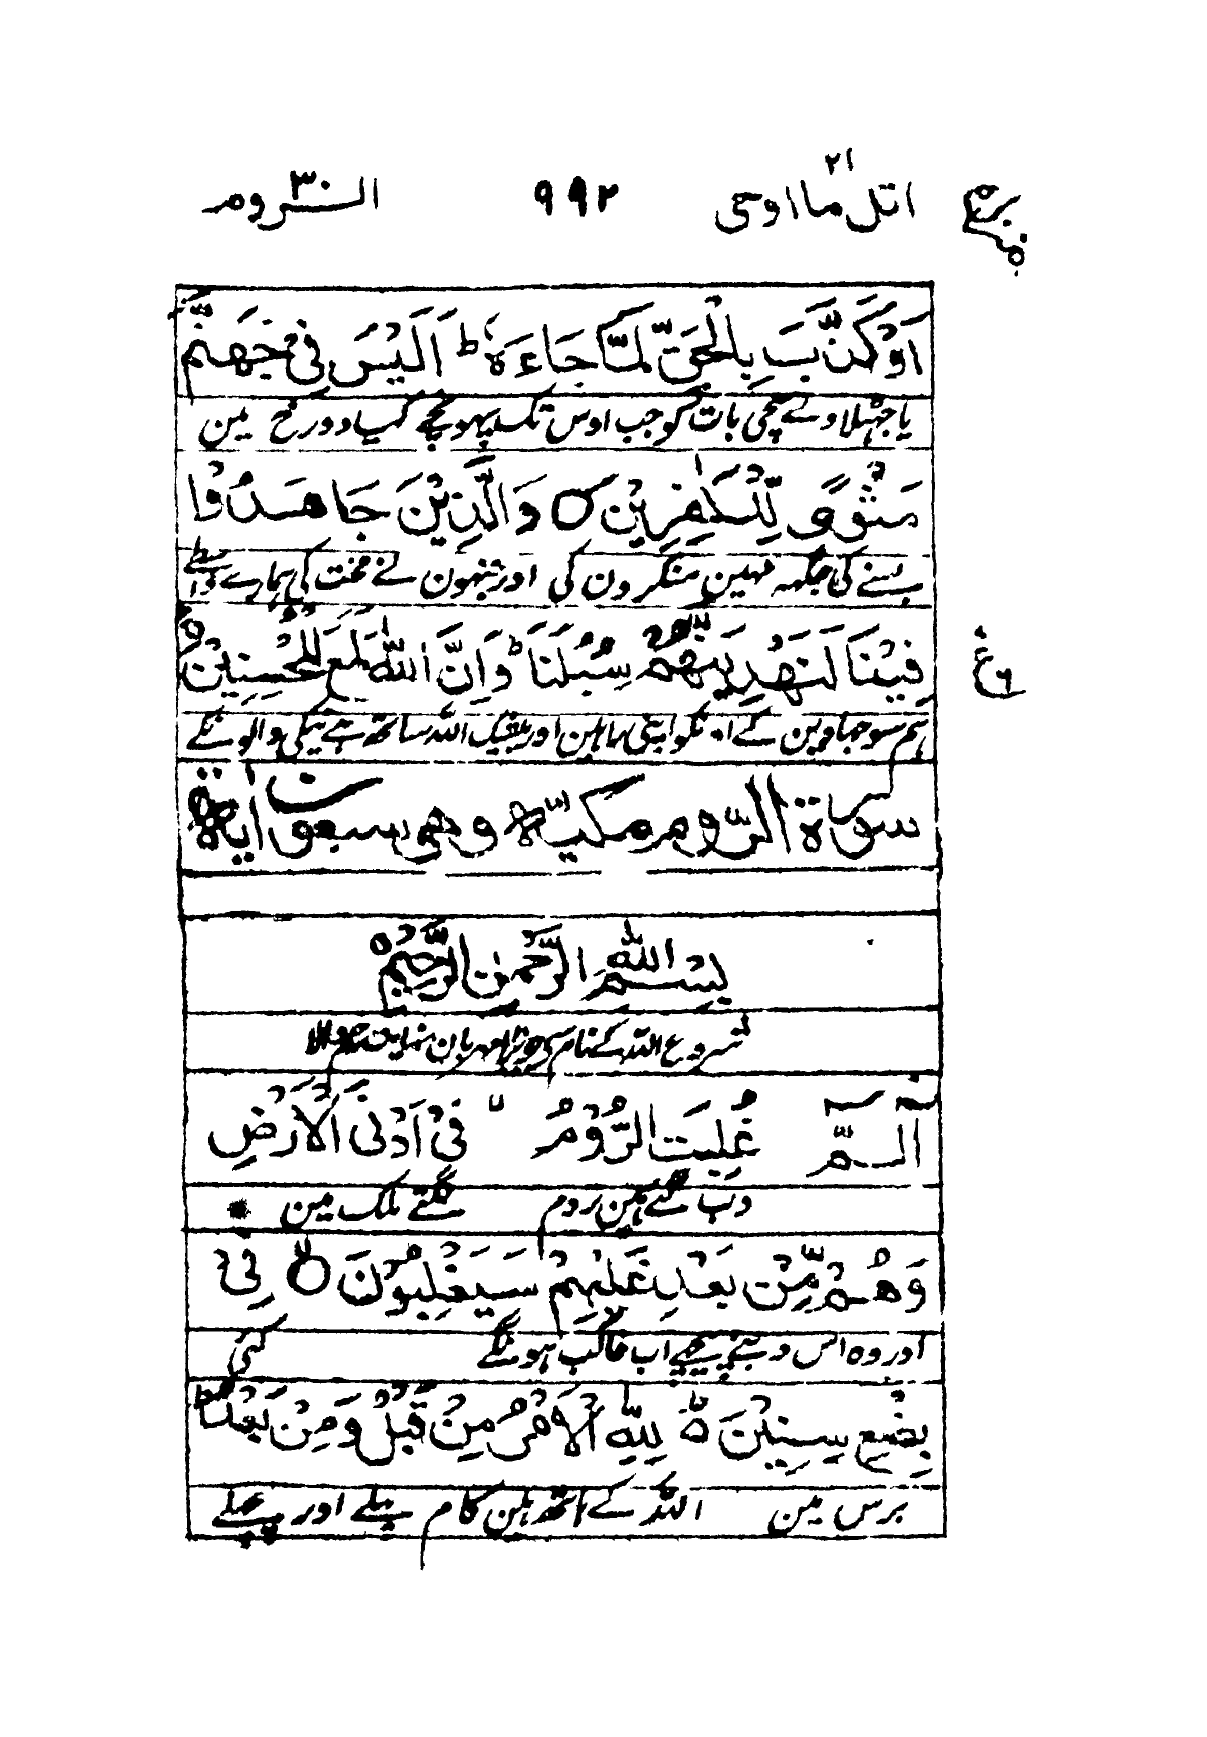 اتل ما اوحی ۲۱ ۹۹۲ الروم ۳۰
اَوْ كَذَّبَ بِالْحَقِّ لَمَّا جَاءَهٗ ط اَلَيْسَ فِيْ جَهَنَّمَ
یا جھٹلاوے سچی بات کو جب اوس تک پہونچے کیا دوزخ مین
مَثْوًى لِّلْكٰفِرِيْنَ ○ وَالَّذِيْنَ جَاهَدُوْا
بسنے کی جگہہ نہین منکرون کی اور جنہون نے محنت کی ہمارے واسطے
فِيْنَا لَنَهْدِيَنَّهُمْ سُبُلَنَا ط وَاِنَّ اللّٰهَ لَمَعَ الْمُحْسِنِيْنَ
ع ۶
ہم سوجھاوین گے اونکو اپنی راہین اور بیشک اللہ ساتھ ہے نیکی والونکے
سورة الروم مكية وهي ستون اية
بِسْمِ اللّٰهِ الرَّحْمٰنِ الرَّحِيْمِ
شروع اللہ کے نام سے جو بڑا مہربان نہایت رحم والا
الٓمّٓ غُلِبَتِ الرُّوْمُ لا فِيْ اَدْنَى الْاَرْضِ
دب گئے ہین روم لگتے ملک مین
وَهُمْ مِّنْ بَعْدِ غَلَبِهِمْ سَيَغْلِبُوْنَ ○ لا فِيْ
اور وہ اس دبے پیچھے اب غالب ہونگے کئی
بِضْعِ سِنِيْنَ ه لِلّٰهِ الْاَمْرُ مِنْ قَبْلُ وَمِنْ بَعْدُ ط
برس مین اللہ کے ہاتھ ہین کام پہلے اور پچھلے